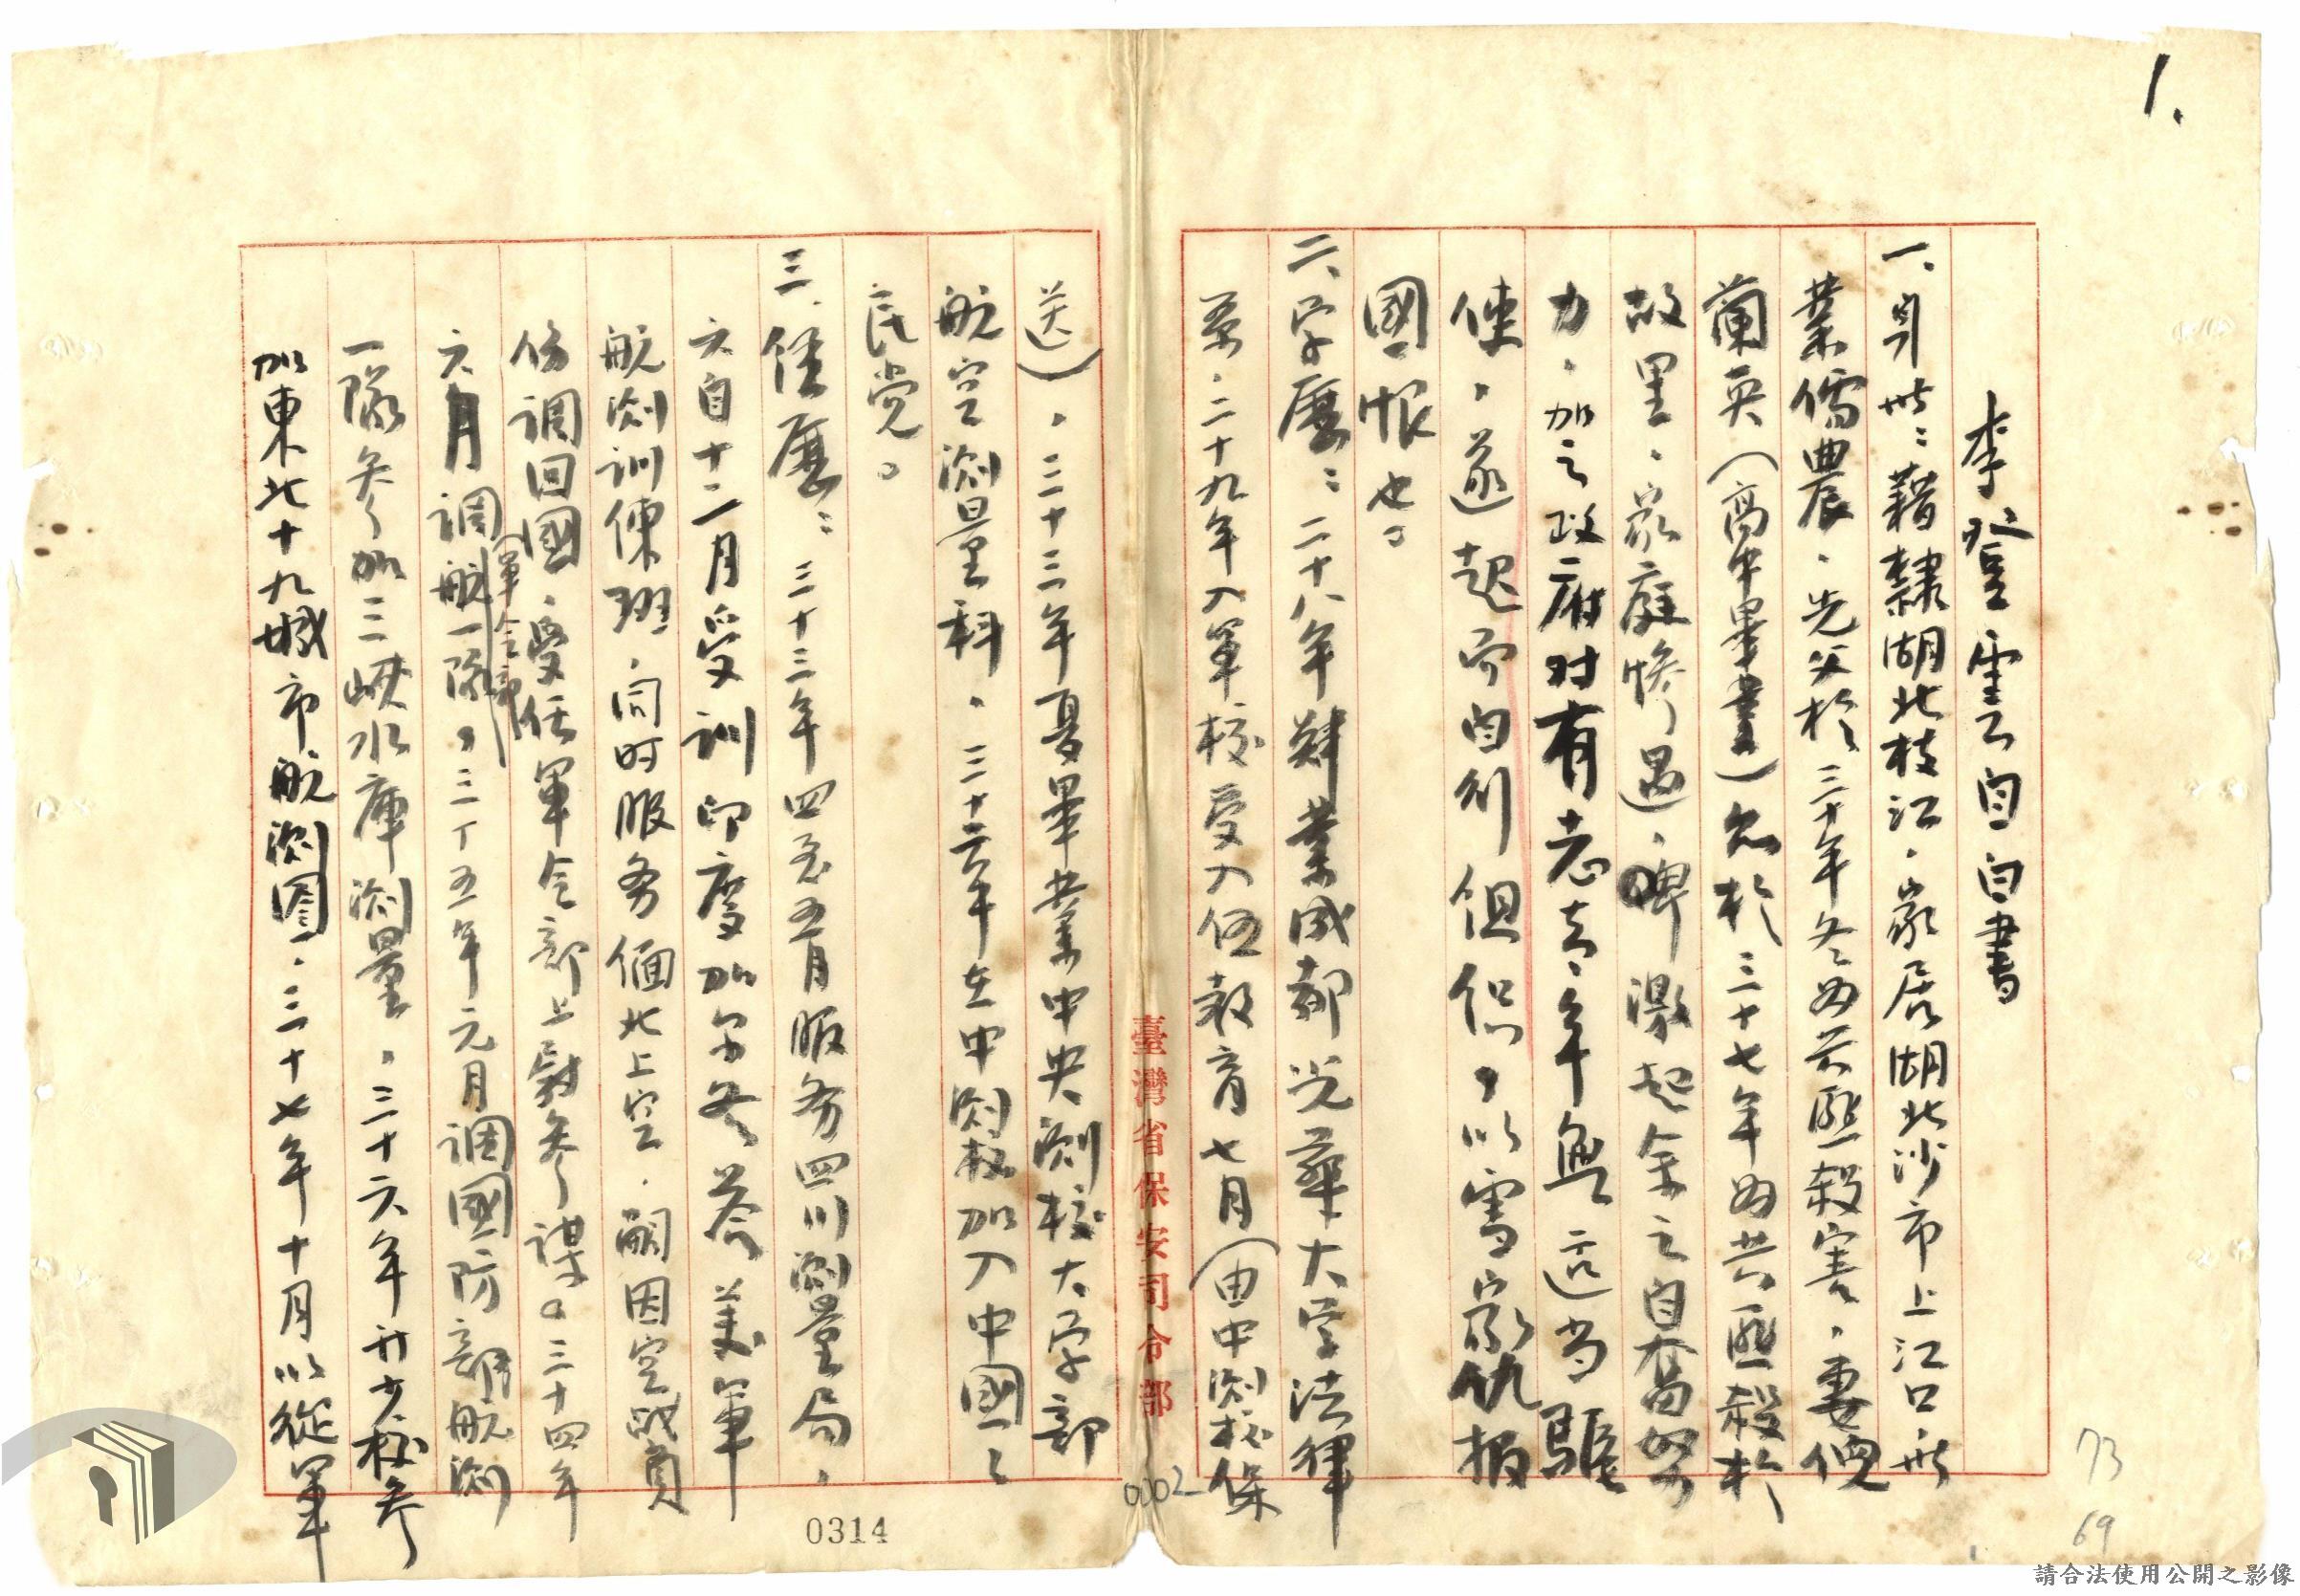 1.
李登雲自白書
一、身世：藉隸湖北枝江，家居湖北沙市上江口，世
業儒農，先父於三十年冬為共匪殺害，妻倪
蘭英（高中畢業）忽於三十七年為共匪殺於
故里，家庭慘遇，啤激起余之自奮努
力，加之政府对有志青年無適当驅
使，遂起而自創組織，以雪家仇报
國恨也。
二、学歷：二十八年肄業成都光華大学法律
系，二十九年入軍校受入伍教育七月（由中測校保
送），三十三年夏畢業中央測校大学部
航空測量科，三十六年在中測校加入中國
民党。
三、經歷：三十三年四至五月服务四川測量局，
六自十二月受訓印度加尔各荅美軍
航測訓練班，同时服务緬北上空，嗣因空战負
伤調回國，受任軍令部上尉参謀。三十四年
六月調（軍令部）航一隊，三十五年元月調國防部航測
一隊参加三峽水庫測量，三十六年升少校参
加東北十九城市航測圖，三十七年十月以從軍
臺灣省保安司令部
0002
0314
73
69
請合法使用公開之影像